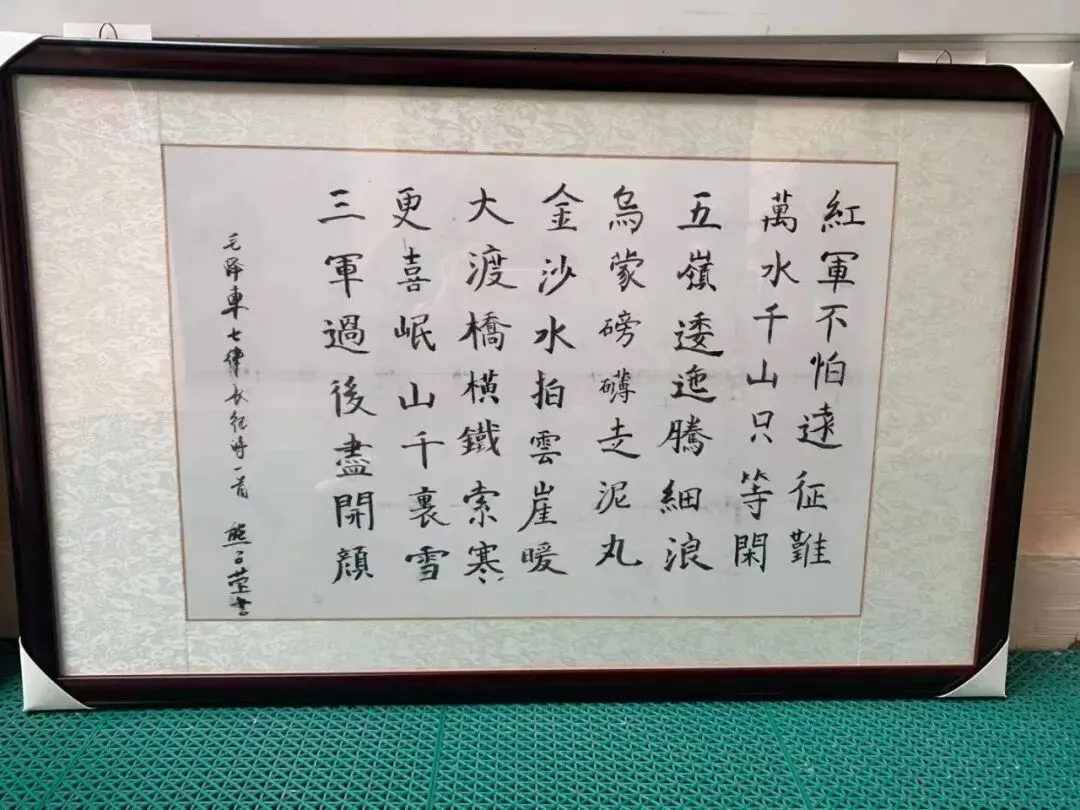 紅軍不怕遠征難
萬水千山只等閑
五嶺逶迤騰細浪
烏蒙磅礴走泥丸
金沙水拍雲崖暖
大渡橋橫鐵索寒
更喜岷山千裏雪
三軍過後盡開顏
毛泽東七律长征诗一首 熊莹書